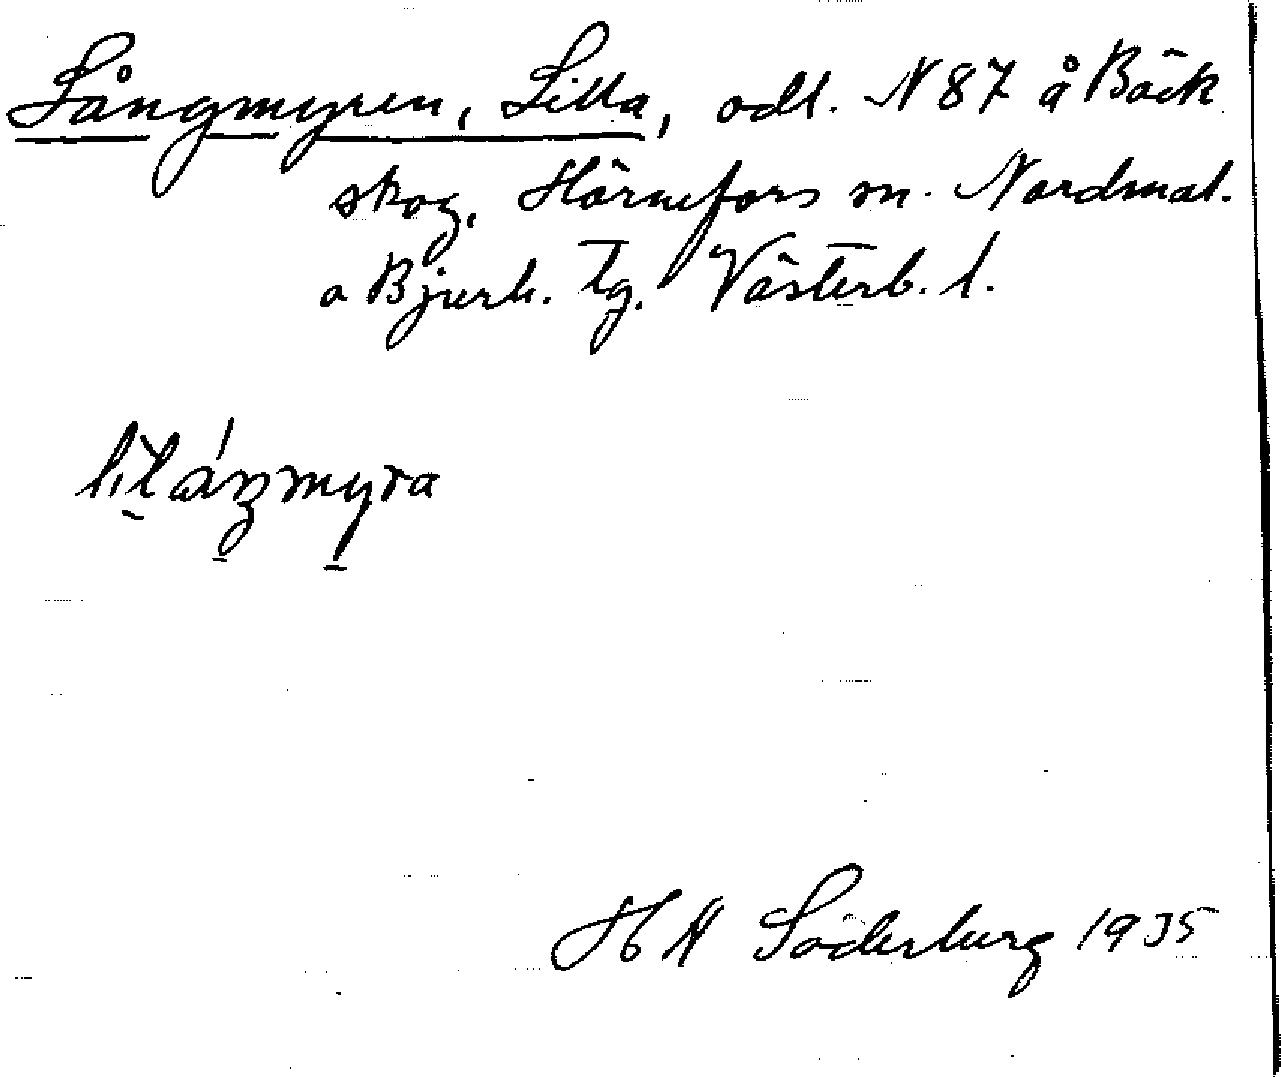 Långmyren, Lilla, odl. N 87 å Bäck
skog, Hörnefors sn. Nordmal.
o Bjurh. tg. Västerb. l.
litáŋmyra
H A Söderberg 1935